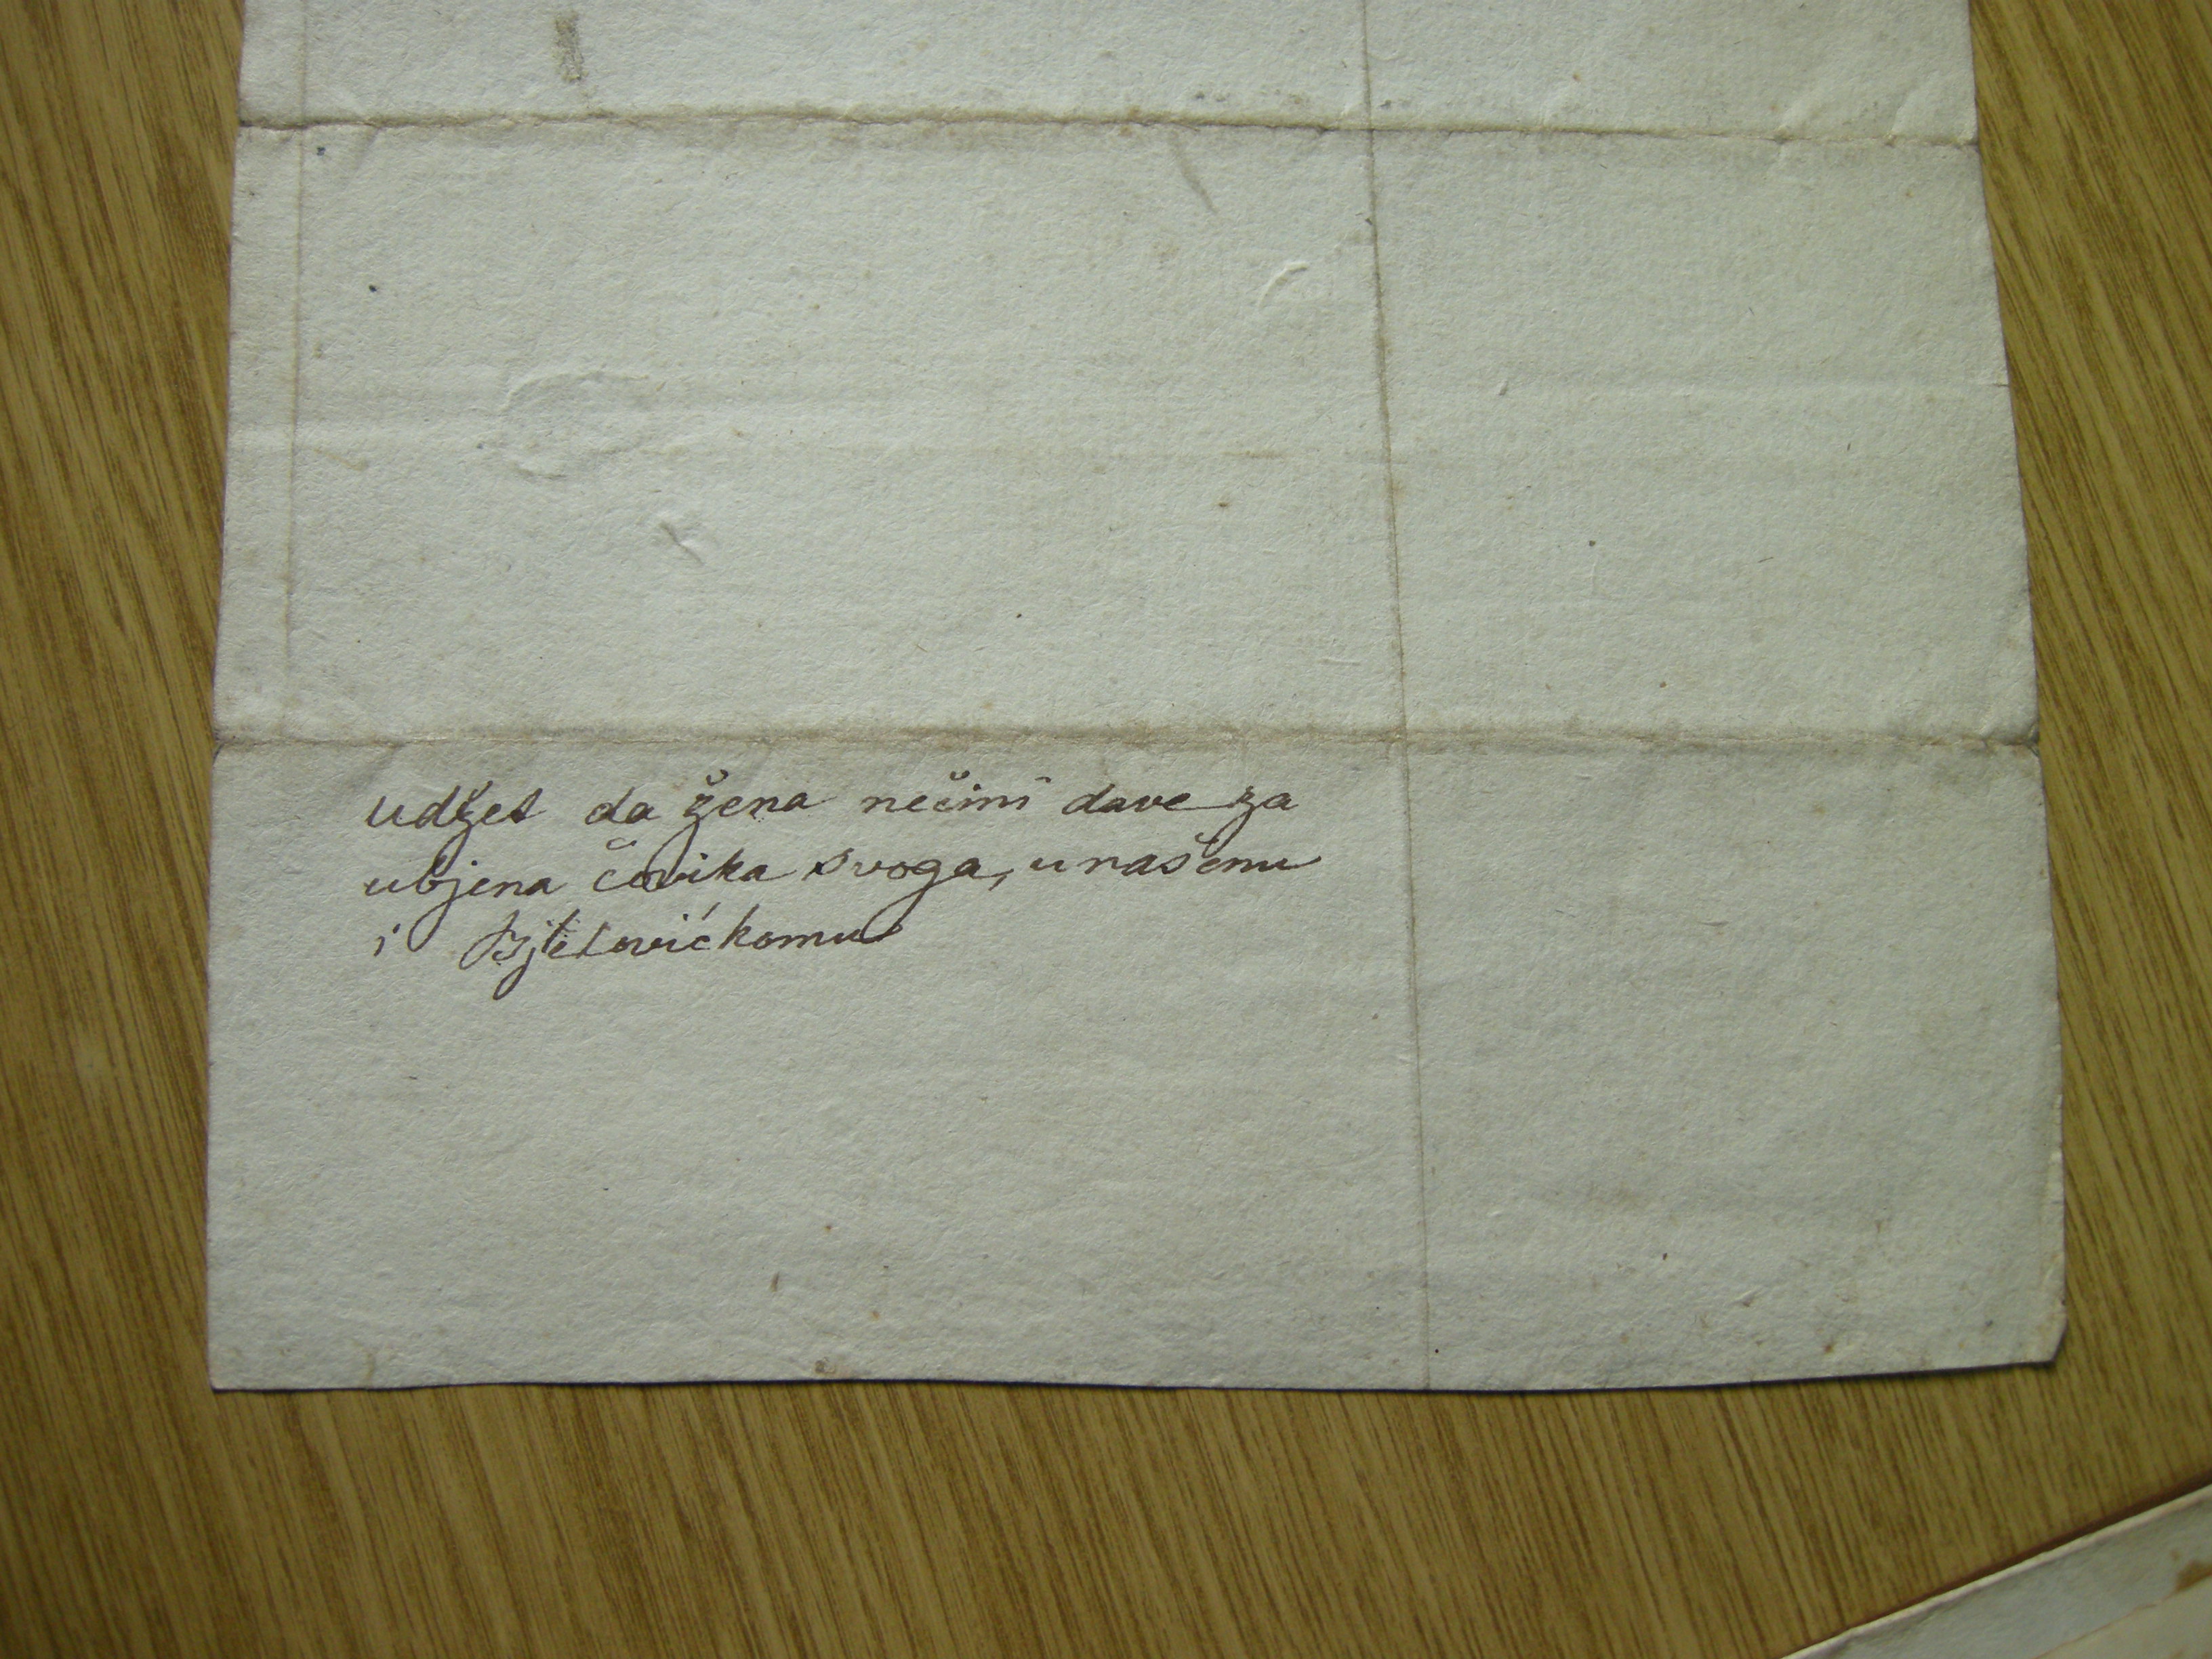 udžet da žena nečini dave za
ubjena čovika svoga, u našemu
i Bjelovićkomu